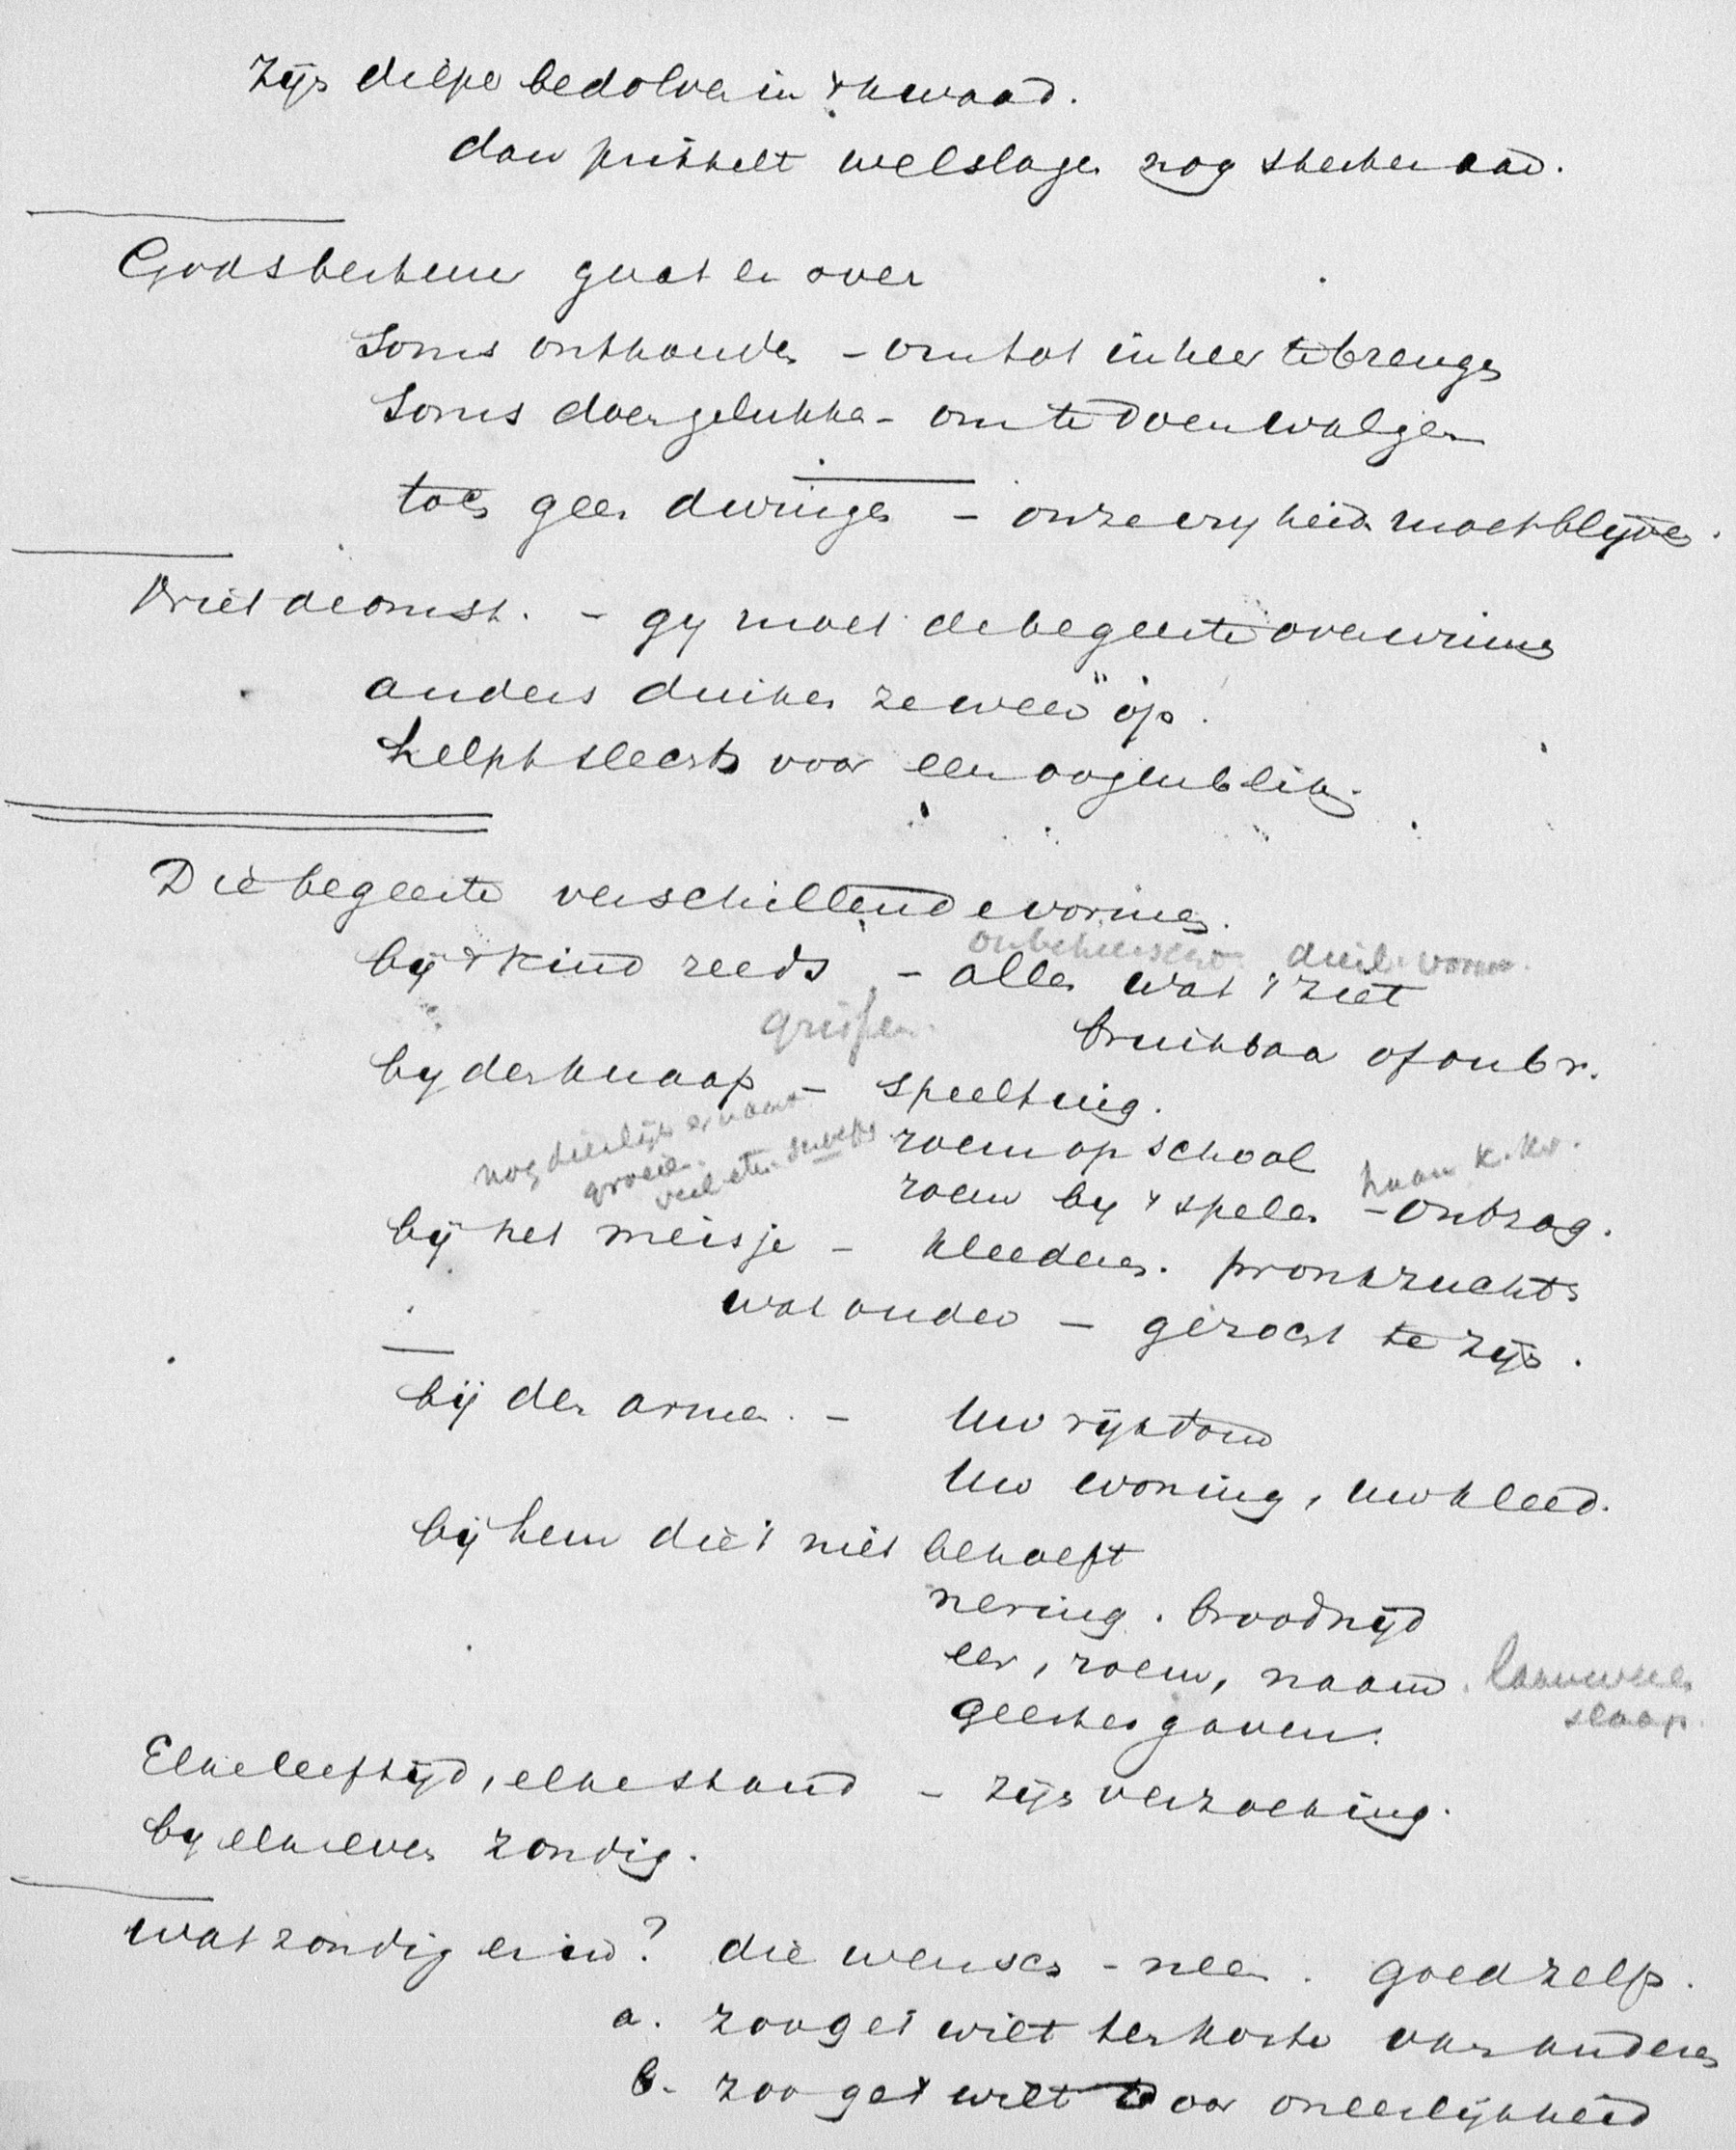 zijn diepe bedolven in 't kwaad.
dan prikkelt welslagen nog sterker aan.
Godsbestuur gaat er over
Soms onthouden - om tot inkeer te brengen
Soms doen gelukken - om te doen walgen
toch geen dwingen - onze vryheid moet blyven.
- gy moet de begeerte overwinnen
anders duiken ze weer op.
helpt slechts voor een oogenblik.
Die begeerte verschillende vormen.
by 't kind reeds - alles wat 't ziet
onbeheerscht
grijpen.
bruikbaar of onbr.
by den knaap - speeltuig.
nog dierlijk
groeien.
veel eten
roem op school
roem by 't spelen - ontzag.
bij het meisje - kleederen. pronkzucht
wat ouder - gezocht te zijn.
bij den armen. - Uw rijkdom
Uw woning, uw kleed.
bij hem die 't niet behoeft
nering. broodnijd
eer, roem, naam. lauweren
slaap.
geestesgaven.
Elke leeftijd, elke stand - zijn verzoeking.
by elk even zondig.
wat zondig erin? die wensch - neen. goed zelfs.
a. zoo ge 't wilt ten koste van anderen
b. zoo ge 't wilt door oneerlijkheid